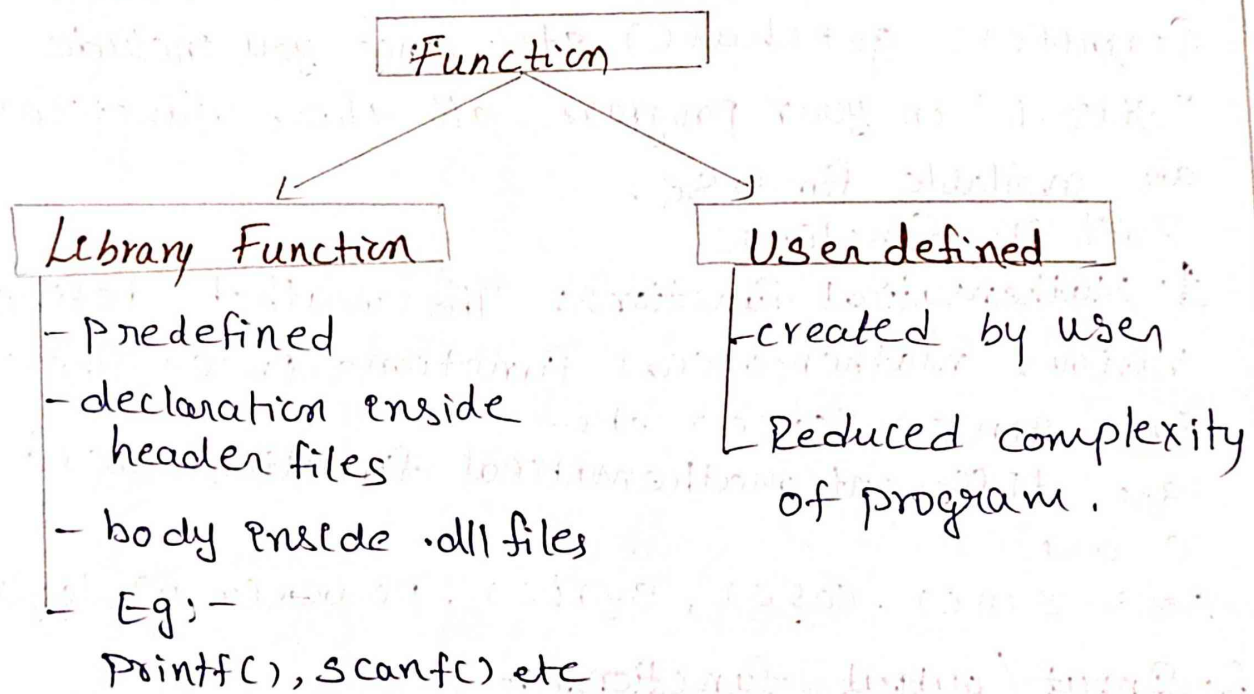 Function
Library Function
- Predefined
- declaration inside
header files
- body inside .dll files
- Eg:-
Printf(), Scanf() etc
User defined
- created by user
- Reduced complexity
of program.